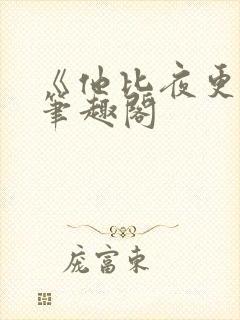 《他比夜更
笔趣阁
庞富东